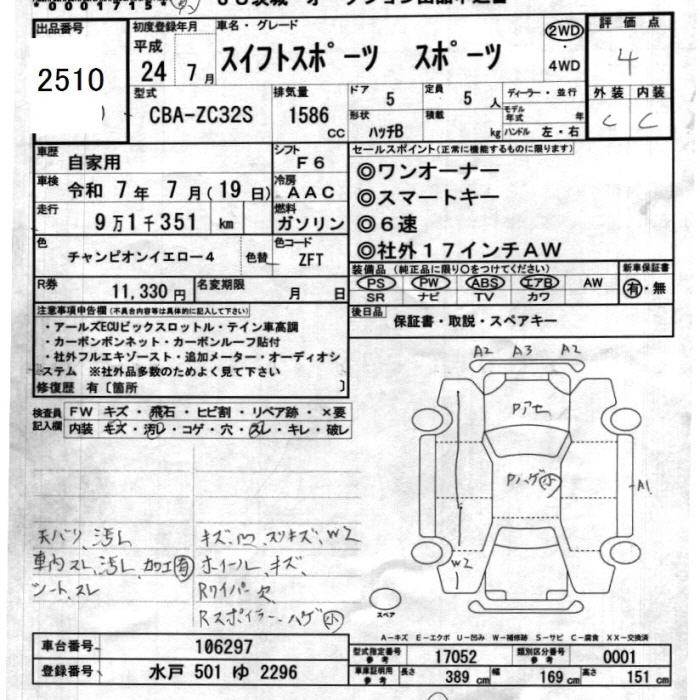 出品番号
2510
初度登録年月
平成
24 7月
車名・グレード
スイフトスポーツ スポーツ
2WD
・
4WD
評価点
4
型式
CBA-ZC32S
排気量
1586 CC
ドア 5
定員 5 人
形状 ハッチB
積載 kg
ディーラー・並行
モデル年式 年
ハンドル 左・右
外装 内装
C C
車歴 自家用
シフト F6
車検 令和 7年 7月(19日)
冷房 AAC
走行 9万1千351 km
燃料 ガソリン
色 チャンピオンイエロー4 色替
色コード ZFT
R券 11,330円
名変期限 月 日
セールスポイント(正常に機能するものに限ります)
◎ワンオーナー
◎スマートキー
◎6速
◎社外17インチAW
装備品 (純正品に限り○をつけてください)
PS PW ABS エアB AW
SR ナビ TV カワ
新車保証書
有・無
後日品 保証書・取説・スペアキー
注意事項申告欄(不具合内容等は具体的に記入して下さい)
・アールズECUビックスロットル・テイン車高調
・カーボンボンネット・カーボンルーフ貼付
・社外フルエキゾースト・追加メーター・オーディオシ
ステム ※社外品多数のためよく見て下さい
修復歴 有〔箇所 〕
検査員記入欄
FW キズ・飛石・ヒビ割・リペア跡・×要
内装 キズ・汚レ・コゲ・穴・スレ・キレ・破レ
A2 A3 A2
Pアセ
Pハゲ小
A1
W2
スペア
天バリ、汚レ
車内スレ、汚レ、加工有
シート、スレ
キズ、凹、スリキズ、W2
ホイール、キズ
Rワイパー欠
Rスポイラーハゲ小
A-キズ E-エクボ U-凹み W-補修跡 S-サビ C-腐食 XX-交換済
車台番号 106297
登録番号 水戸 501 ゆ 2296
型式指定番号 参考 17052
類別区分番号 参考 0001
車庫証明用 参考 長さ 389 cm 幅 169 cm 高さ 151 cm